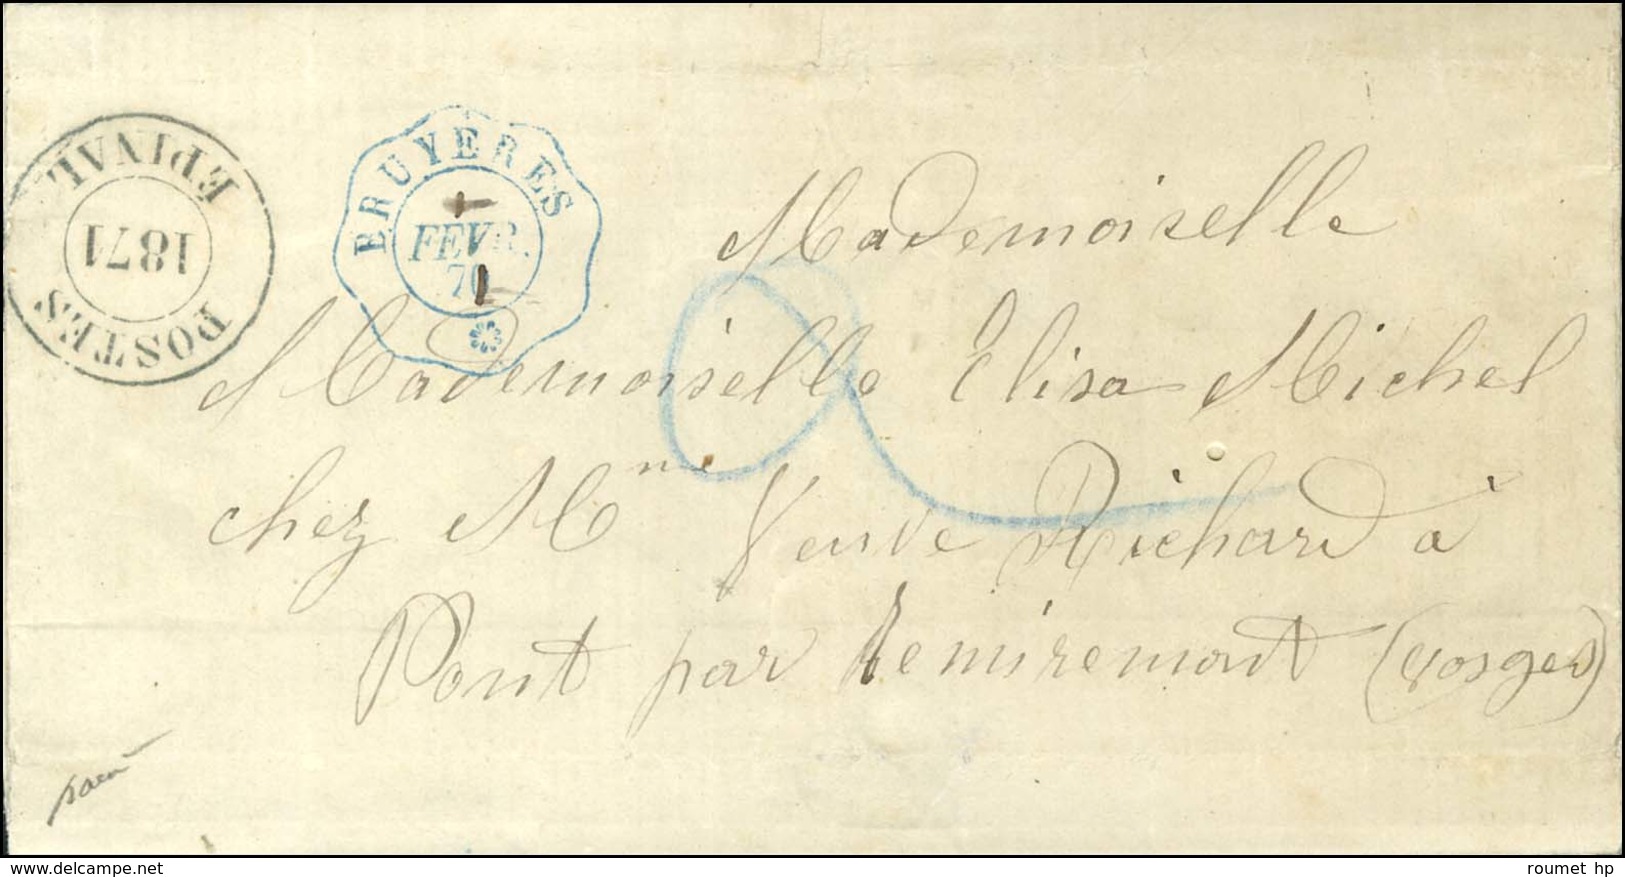 EPIVAL
1871
POSTES
BRUYERES
1
FEVR.
70
Mademoiselle
Mademoiselle Elisa Michel
chez Mme Veuve Richard à
Pont par Remiremont (Vosges)
delcampe.net
roumet hp